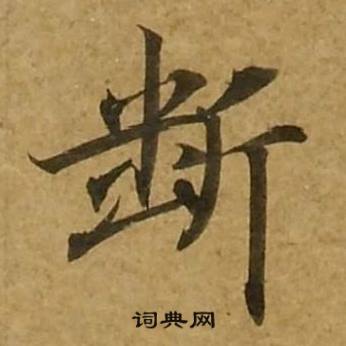 斷
词典网